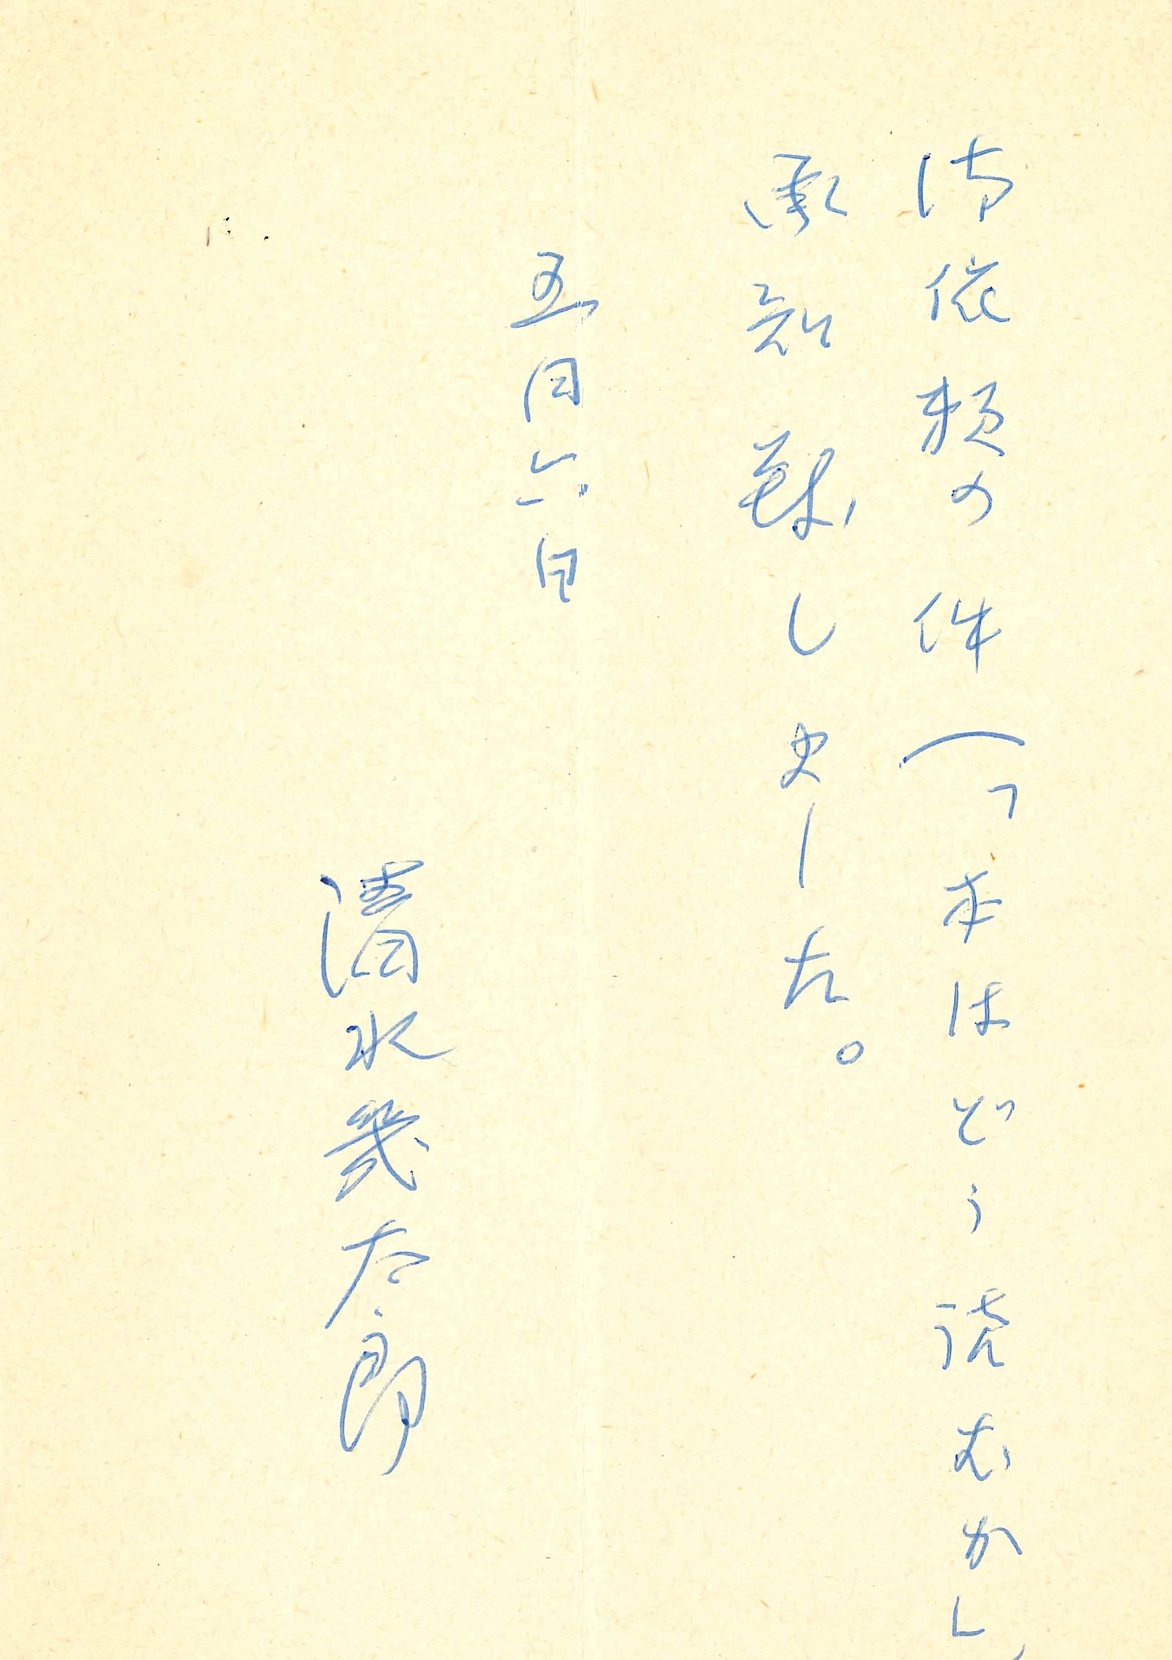 御依頼の件(「本はどう読むか」)
承知致しました。
五月六日
清水幾太郎